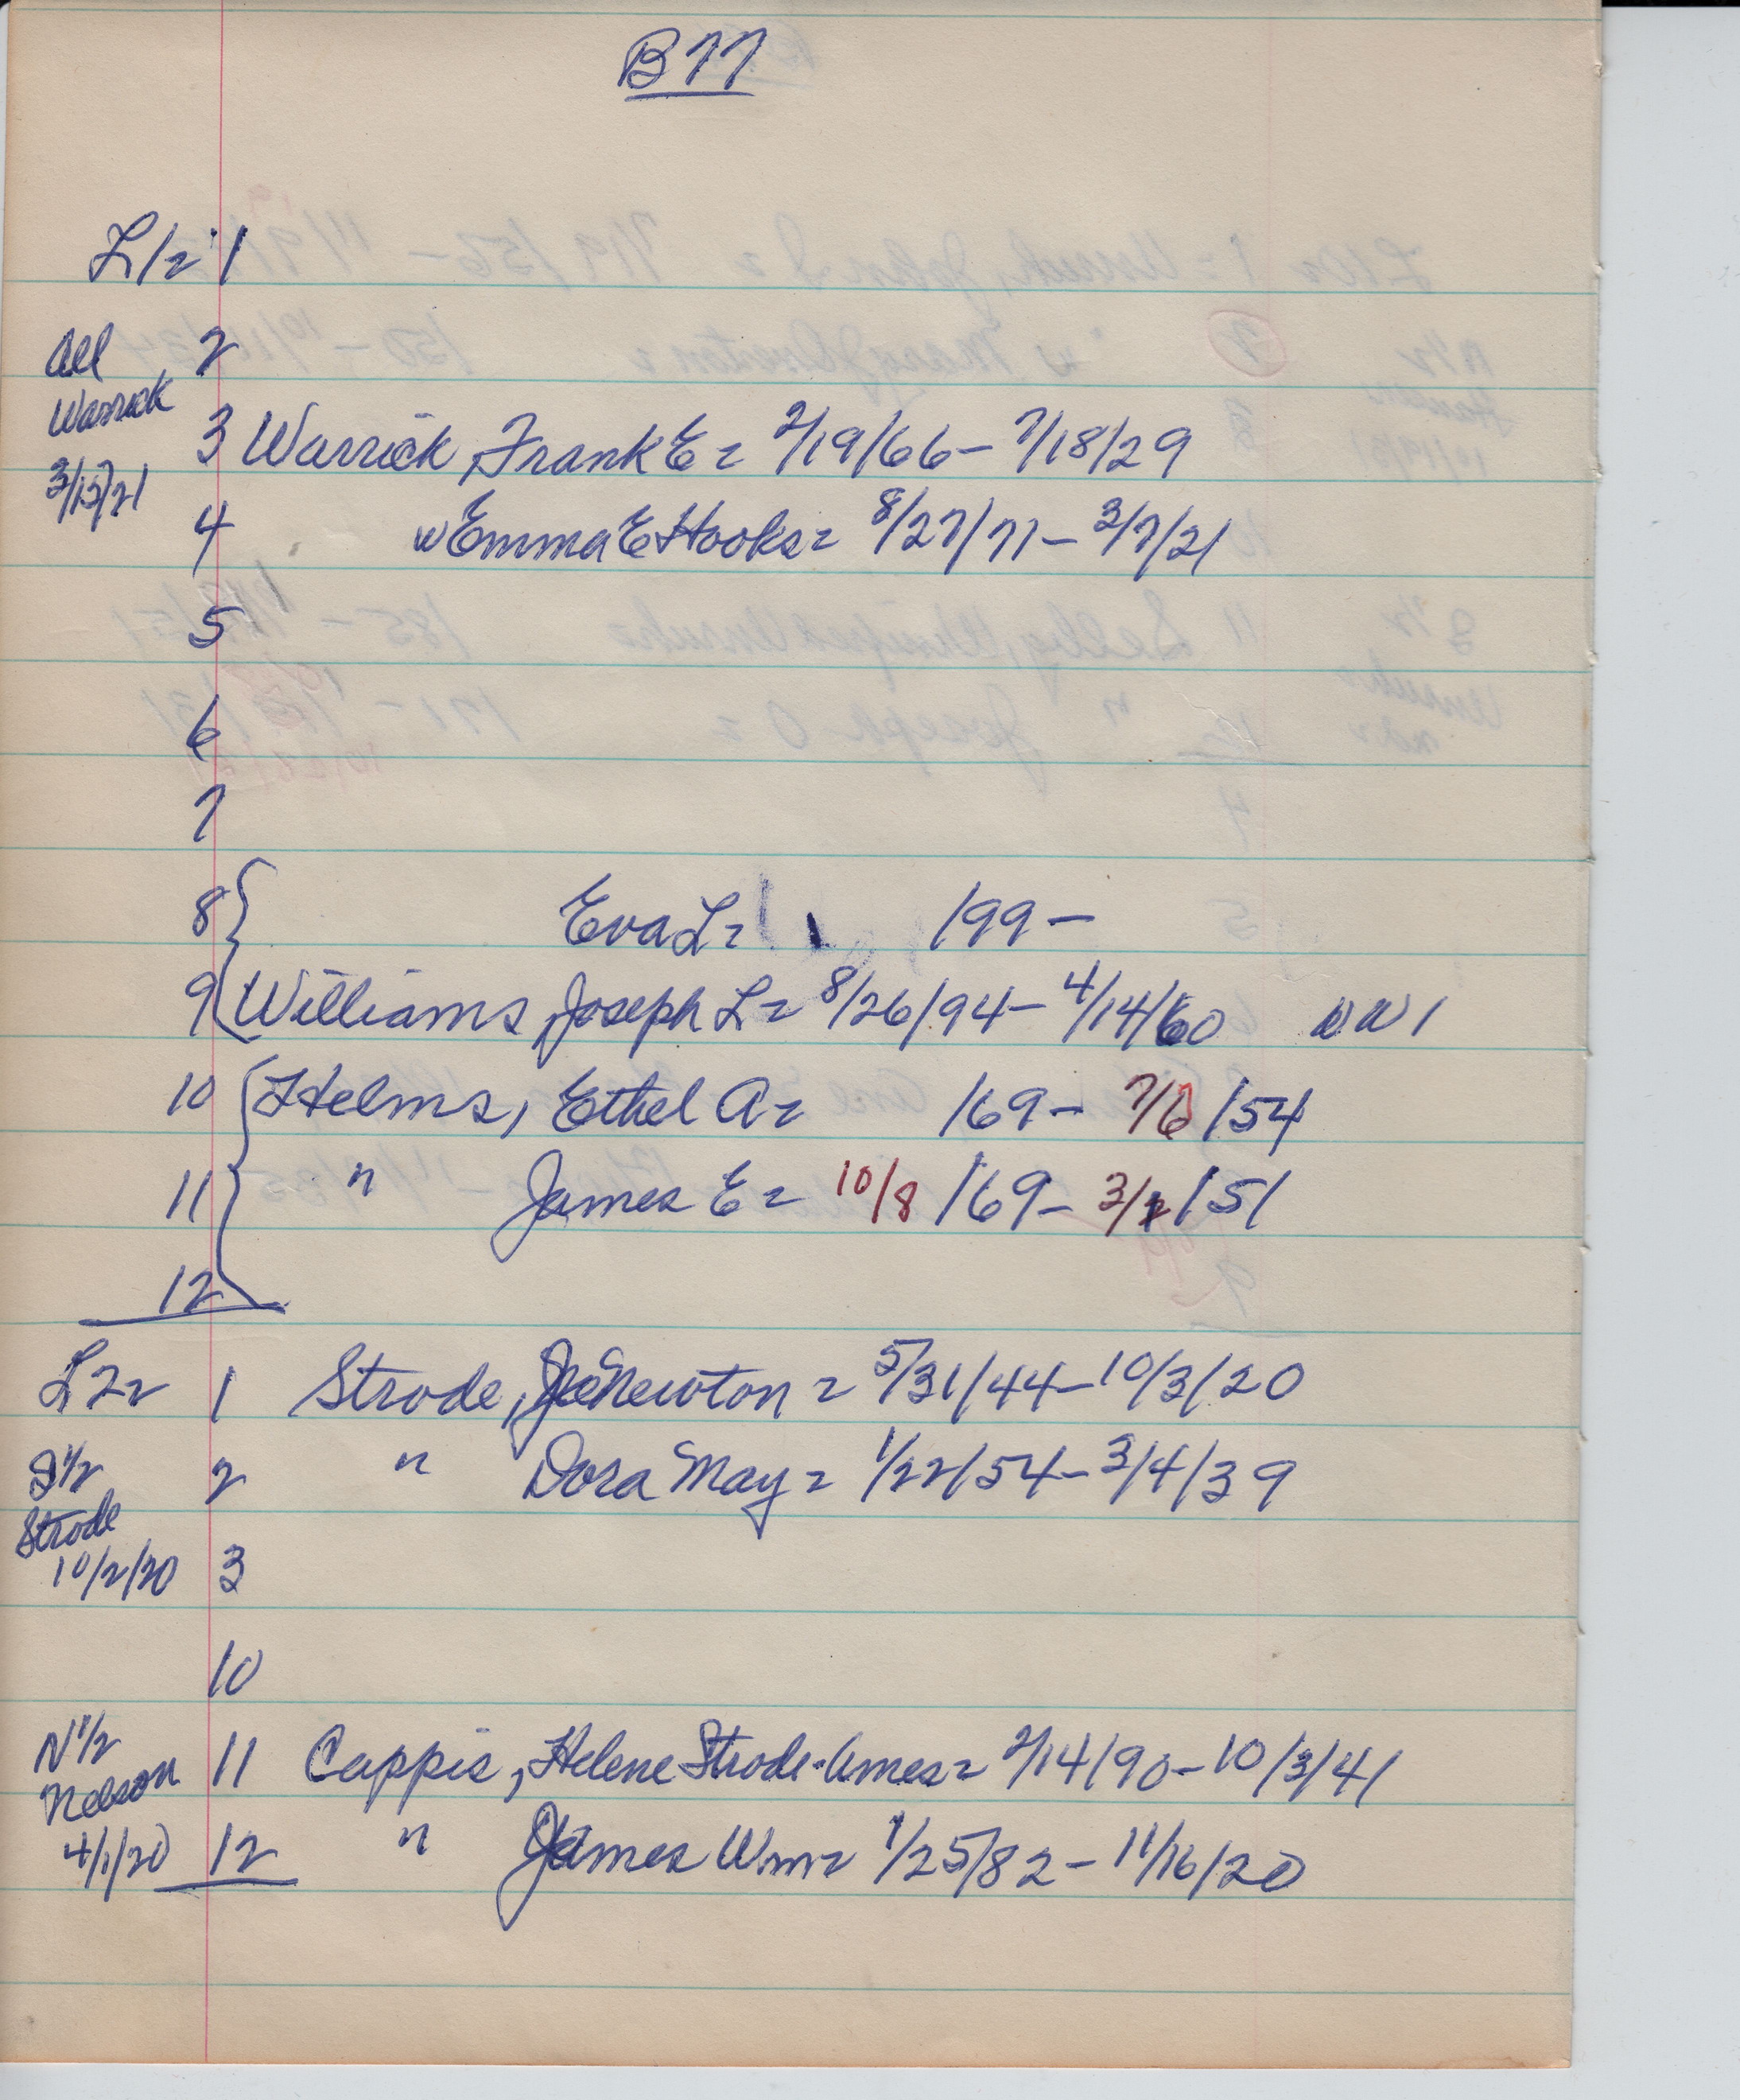 B77
L1= 1
All 2
Warrick
3 Warrick, Frank E = 2/19/66 - 7/18/29
3/15/21
4 w Emma E Hooks = 8/27/71 - 3/7/21
5
6
7
8 Eva L = /99 -
9 Williams, Joseph L = 8/26/94 - 4/14/60 WW1
10 Helms, Ethel A = /69 - 7/6/54
11 " James E = 10/8/69 - 3/ /51
12
L2= 1 Strode, Newton = 5/31/44 - 10/3/20
S1/2 2 " Dora May = 1/22/54 - 3/4/39
Strode
10/2/20 3
10
N1/2
Nelson 11 Cappis, Helene Strode-Ames = 2/14/90 - 10/3/41
4/1/20 12 " James Wm = 1/25/82 - 11/16/20